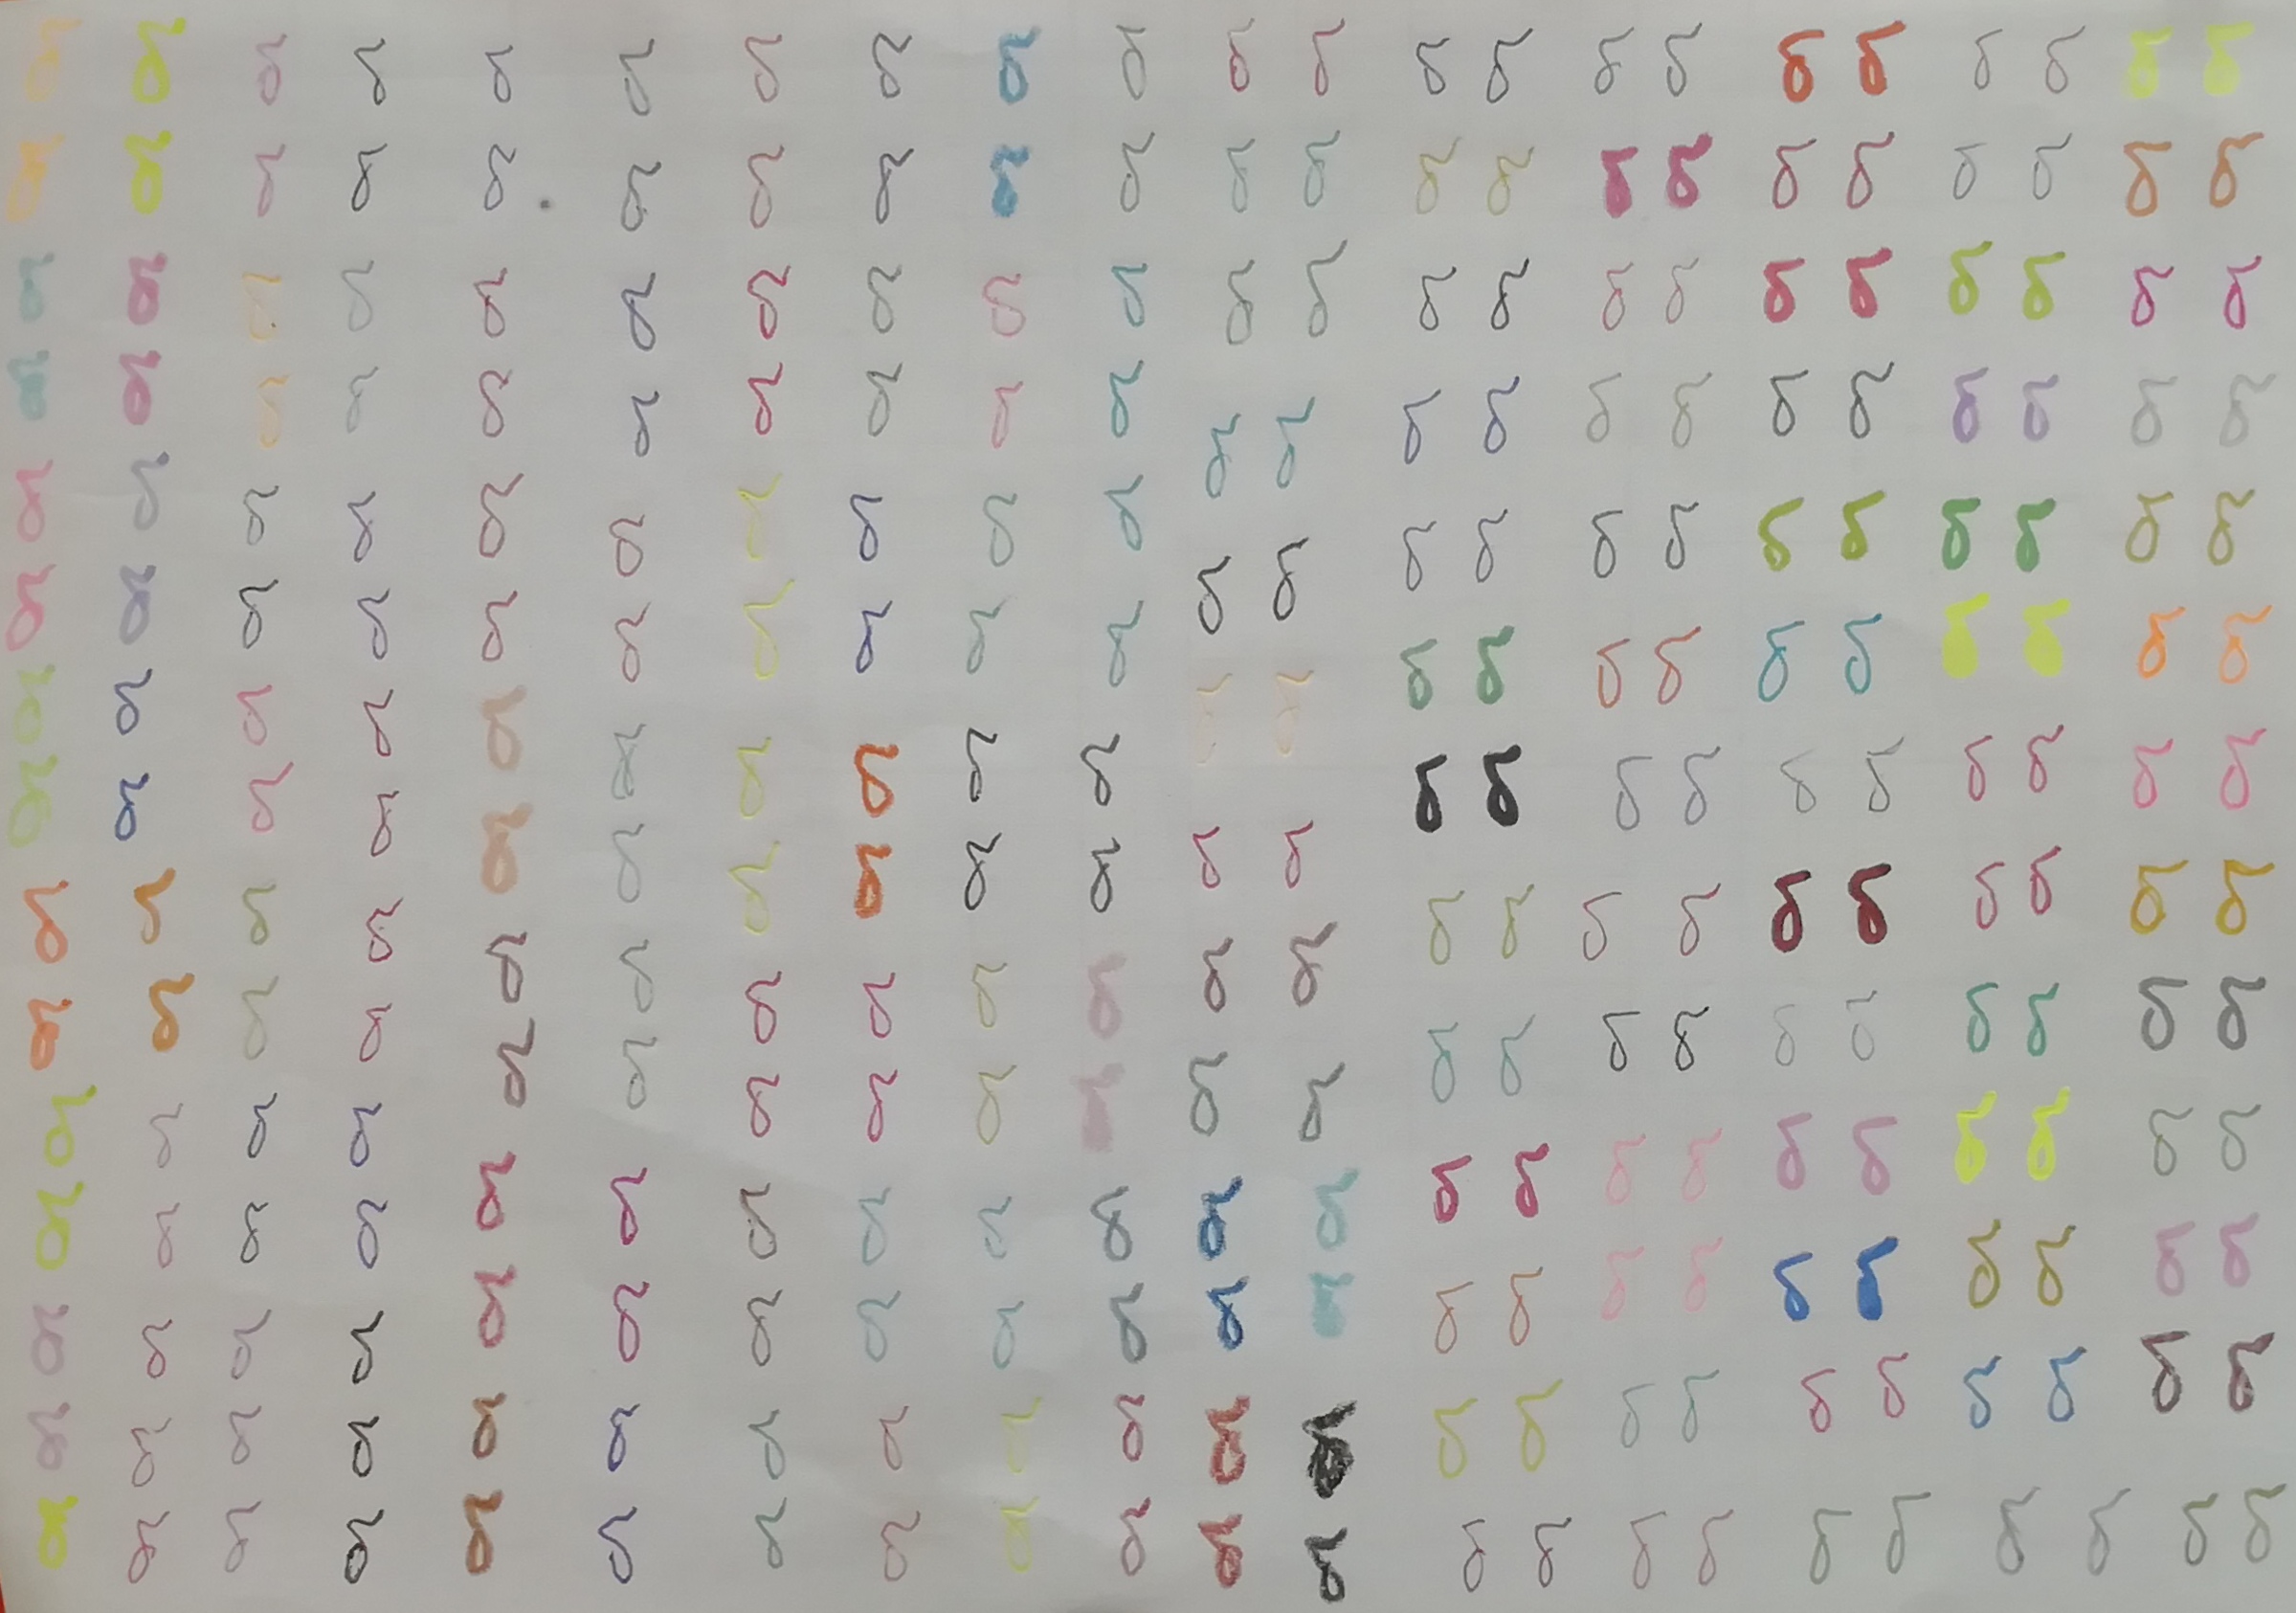 δ δ δ δ δ δ δ δ δ δ δ δ δ δ δ δ δ δ δ δ δ δ
δ δ δ δ δ δ δ δ δ δ δ δ δ δ δ δ δ δ δ δ δ δ
δ δ δ δ δ δ δ δ δ δ δ δ δ δ δ δ δ δ δ δ δ δ
δ δ δ δ δ δ δ δ δ δ δ δ δ δ δ δ δ δ δ δ δ δ
δ δ δ δ δ δ δ δ δ δ δ δ δ δ δ δ δ δ δ δ δ δ
δ δ δ δ δ δ δ δ δ δ δ δ δ δ δ δ δ δ δ δ δ δ
δ δ δ δ δ δ δ δ δ δ δ δ δ δ δ δ δ δ δ δ δ δ
δ δ δ δ δ δ δ δ δ δ δ δ δ δ δ δ δ δ δ δ δ δ
δ δ δ δ δ δ δ δ δ δ δ δ δ δ δ δ δ δ δ δ δ δ
δ δ δ δ δ δ δ δ δ δ δ δ δ δ δ δ δ δ δ δ δ δ
δ δ δ δ δ δ δ δ δ δ δ δ δ δ δ δ δ δ δ δ δ δ
δ δ δ δ δ δ δ δ δ δ δ δ δ δ δ δ δ δ δ δ δ δ
δ δ δ δ δ δ δ δ δ δ δ δ δ δ δ δ δ δ δ δ δ δ
δ δ δ δ δ δ δ δ δ δ
δ δ δ δ